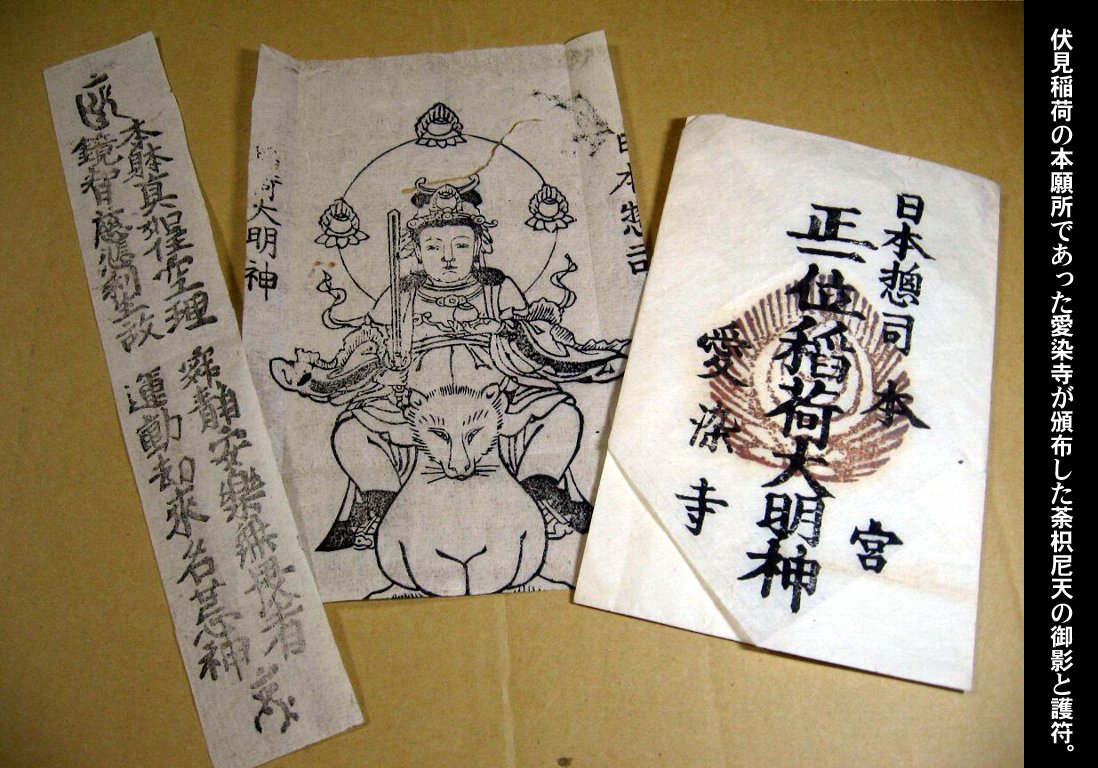 伏見稲荷の本願所であった愛染寺が頒布した荼枳尼天の御影と護符。
日本惣司
本宮
正一位稲荷大明神
愛染寺
日本惣司
荷大明神
本躰真如住空理
寂静安楽無畏者
鏡智慈悲利生故
運動却来名荒神